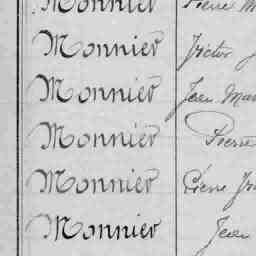 Monnier Pierre M
Monnier Victor J
Monnier Jean Mar
Monnier Pierre
Monnier Pierre Fr
Monnier Jean